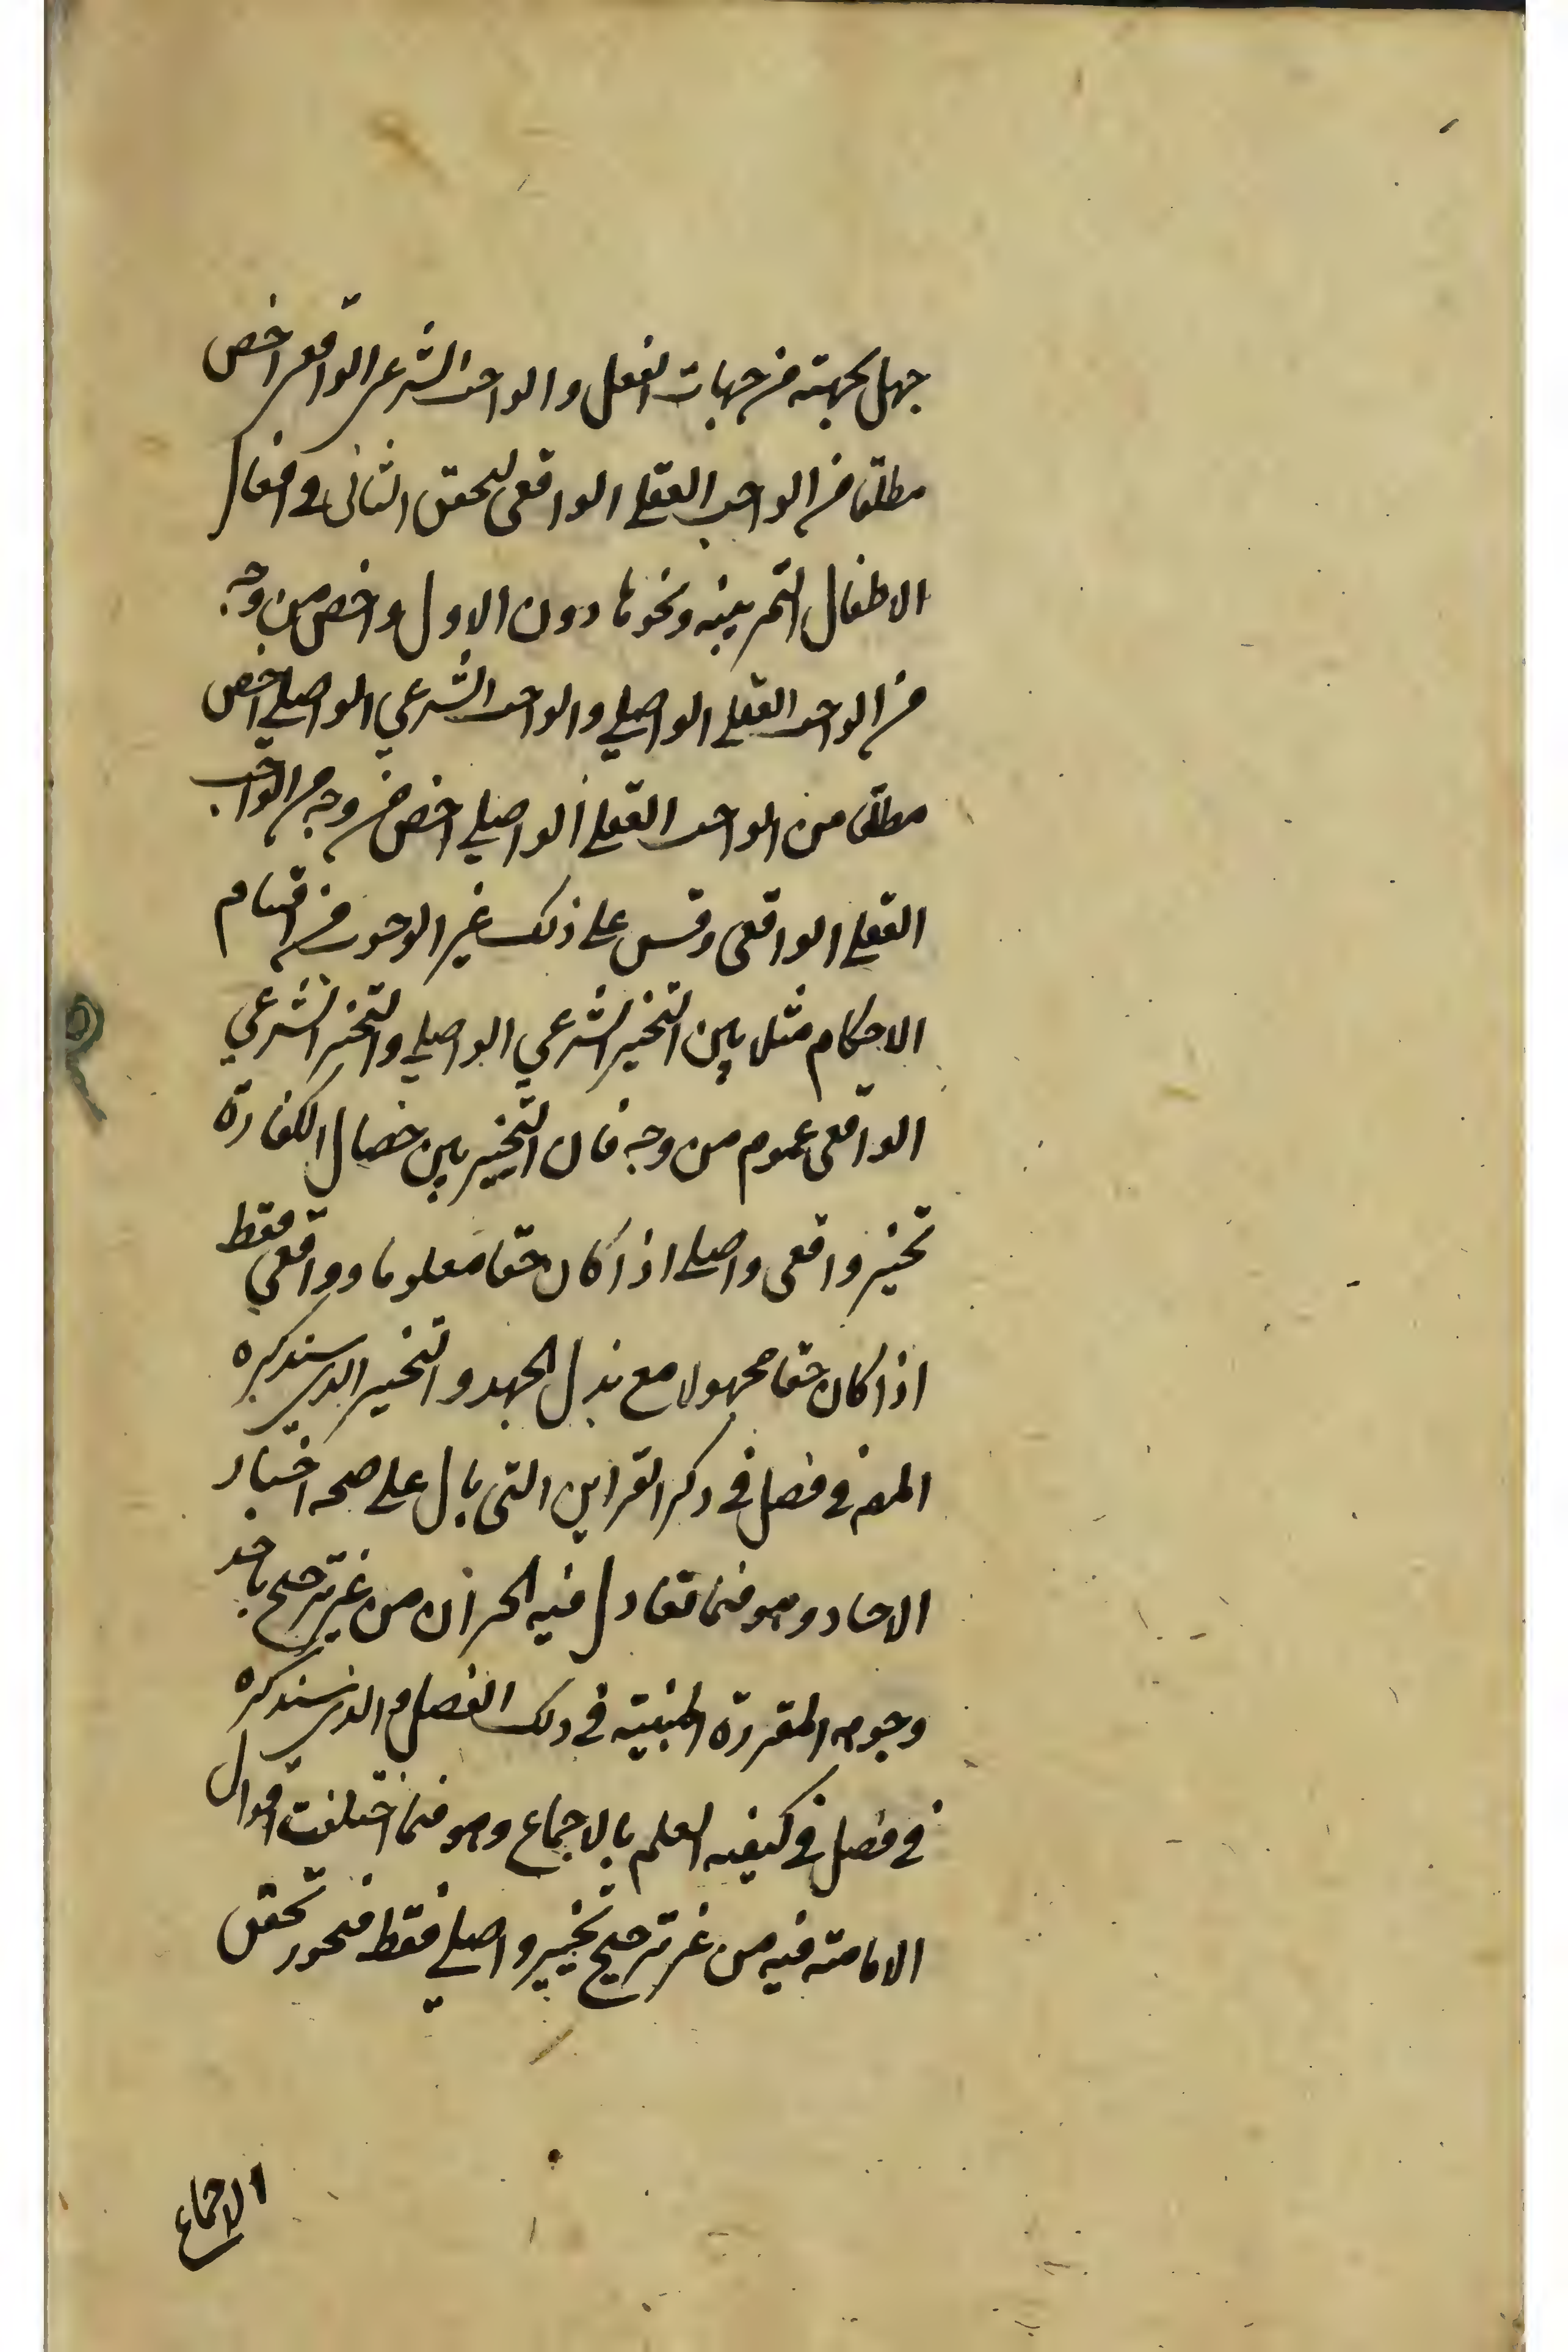 جهل بجهته من جهات الفعل والواجب الشرعي الواقعي اخص
مطلقا من الواجب العقلي الواقعي لتحقق الثاني في افعال
الاطفال التمرينيه ونحوها دون الاول واخص من وجه
من الواجب العقلي الواصلي والواجب الشرعي الواصلي اخص
مطلقا من الواجب العقلي الواصلي اخص من وجه من الواجب
العقلي الواقعي وقس على ذلك غير الوجوب من اقسام
الاحكام مثلا بين التخيير الشرعي الواصلي والتخيير الشرعي
الواقعي عموم من وجه فان التخيير بين خصال الكفارة
تخيير واقعي واصلي اذا كان حقا معلوما وواقعي فقط
اذا كان حقا مجهولا مع بذل الجهد والتخيير الذي سنذكره
المص في فصل في ذكر القراين التي يدل على صحه اخبار
الاحاد وهو فيما تعادل فيه الخبران من غير ترجيح باحد
وجوه المقررة المبنية في ذلك الفصل والذي سنذكره
في فصل في كيفيه العلم بالاجماع وهو فيما اختلفت اقوال
الامامته فيه من غير ترجيح تخيير واصلي فقط فيجوز تحقق
الاجماع